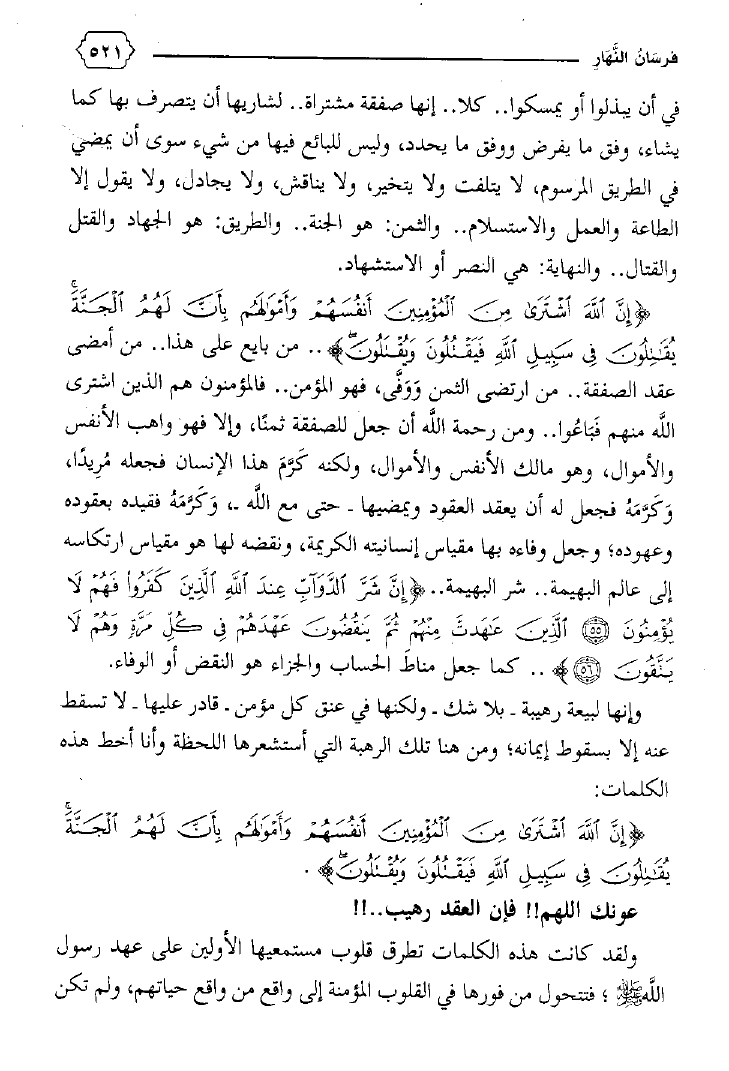 فرسَانُ النَّهَارِ ٥٢١
في أن يبذلوا أو يمسكوا.. كلا.. إنها صفقة مشتراة.. لشاريها أن يتصرف بها كما
يشاء، وفق ما يفرض ووفق ما يحدد، وليس للبائع فيها من شيء سوى أن يمضي
في الطريق المرسوم، لا يتلفت ولا يتخير، ولا يناقش، ولا يجادل، ولا يقول إلا
الطاعة والعمل والاستسلام.. والثمن: هو الجنة.. والطريق: هو الجهاد والقتل
والقتال.. والنهاية: هي النصر أو الاستشهاد.
﴿إِنَّ ٱللَّهَ ٱشْتَرَىٰ مِنَ ٱلْمُؤْمِنِينَ أَنفُسَهُمْ وَأَمْوَٰلَهُم بِأَنَّ لَهُمُ ٱلْجَنَّةَۚ
يُقَٰتِلُونَ فِي سَبِيلِ ٱللَّهِ فَيَقْتُلُونَ وَيُقْتَلُونَۖ﴾ .. من بايع على هذا.. من أمضى
عقد الصفقة.. من ارتضى الثمن وَوَفَّى، فهو المؤمن.. فالمؤمنون هم الذين اشترى
اللَّه منهم فَبَاعُوا.. ومن رحمة اللَّه أن جعل للصفقة ثمنًا، وإلا فهو واهب الأنفس
والأموال، وهو مالك الأنفس والأموال، ولكنه كَرَّمَ هذا الإنسان فجعله مُرِيدًا،
وَكَرَّمَهُ فجعل له أن يعقد العقود ويمضيها ـ حتى مع اللَّه ـ، وَكَرَّمَهُ فقيده بعقوده
وعهوده؛ وجعل وفاءه بها مقياس إنسانيته الكريمة، ونقضه لها هو مقياس ارتكاسه
إلى عالم البهيمة.. شر البهيمة.. ﴿إِنَّ شَرَّ ٱلدَّوَآبِّ عِندَ ٱللَّهِ ٱلَّذِينَ كَفَرُوا۟ فَهُمْ لَا
يُؤْمِنُونَ ٥٥ ٱلَّذِينَ عَٰهَدتَّ مِنْهُمْ ثُمَّ يَنقُضُونَ عَهْدَهُمْ فِي كُلِّ مَرَّةٍ وَهُمْ لَا
يَتَّقُونَ ٥٦﴾ .. كما جعل مناطَ الحساب والجزاء هو النقض أو الوفاء.
وإنها لبيعة رهيبة ـ بلا شك ـ ولكنها في عنق كل مؤمن ـ قادر عليها ـ لا تسقط
عنه إلا بسقوط إيمانه؛ ومن هنا تلك الرهبة التي أستشعرها اللحظة وأنا أخط هذه
الكلمات:
﴿إِنَّ ٱللَّهَ ٱشْتَرَىٰ مِنَ ٱلْمُؤْمِنِينَ أَنفُسَهُمْ وَأَمْوَٰلَهُم بِأَنَّ لَهُمُ ٱلْجَنَّةَۚ
يُقَٰتِلُونَ فِي سَبِيلِ ٱللَّهِ فَيَقْتُلُونَ وَيُقْتَلُونَۖ﴾ .
عونك اللهم!! فإن العقد رهيب..!!
ولقد كانت هذه الكلمات تطرق قلوب مستمعيها الأولين على عهد رسول
اللَّه ﷺ ؛ فتتحول من فورها في القلوب المؤمنة إلى واقع من واقع حياتهم، ولم تكن